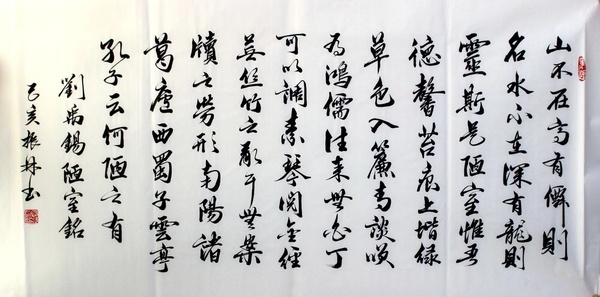 山不在高有僊則
名水不在深有龍則
靈斯是陋室惟吾
德馨苔痕上堦綠
草色入簾青談咲
為鴻儒往来無白丁
可以調素琴閱金經
無丝竹之亂耳無案
牘之勞形南陽諸
葛廬西蜀子雲亭
孔子云何陋之有
劉禹錫陋室銘
己亥振林书